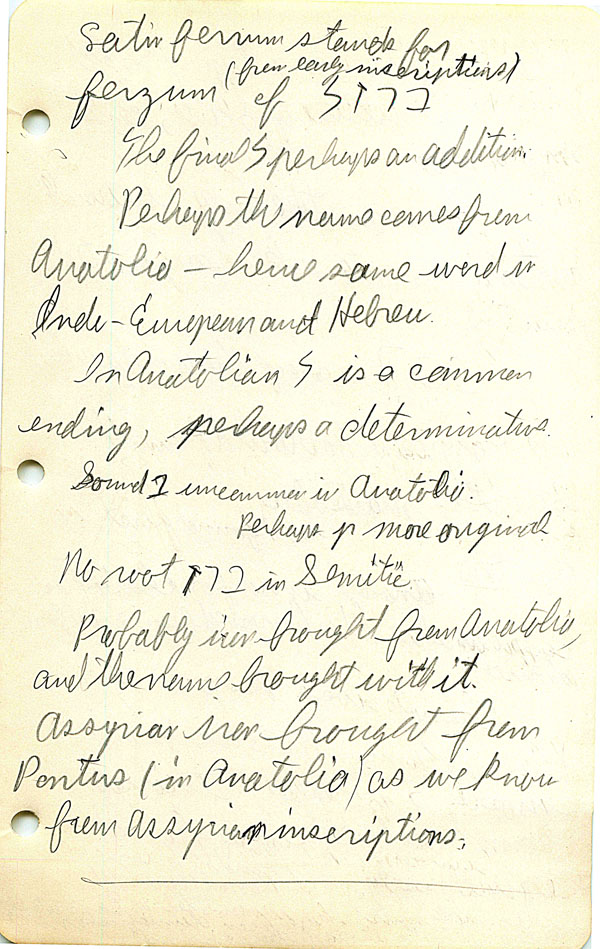 Latin ferrum stands for
(from early inscriptions)
ferzum cf ברזל
The final ל perhaps an addition.
Perhaps the name comes from
Anatolia – hence same word in
Indo-European and Hebrew.
In Anatolian ל is a common
ending, perhaps a determinative.
Sound ב uncommon in Anatolia.
Perhaps p more original
No root ברז in Semitic.
Probably iron brought from Anatolia,
and the name brought with it.
Assyrian iron brought from
Pontus (in Anatolia) as we know
from Assyrian inscriptions.